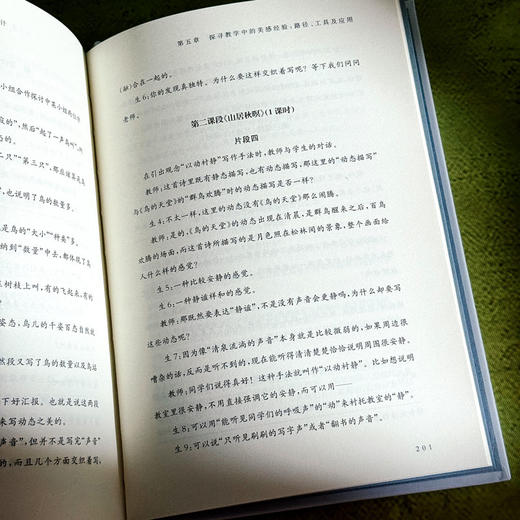 计
小组合作探讨中某小组两位同
寂的”，然后“起了一声鸟叫”，
二只”“第三只”，那应该算是
说，也写出了鸟的数量多。
了鸟的“大小”“种类”多。
纳到“数量”中去，都体现了鸟
在树枝上叫，有的飞起来，有的
姿态，鸟儿的千姿百态自然就
然段又写了鸟的数量以及鸟活
下好汇报。也就是说，这两段
来写动态之美的。
声音”，但并不是写完“声音
的，而且几个方面交织着写，
第五章 探寻教学中的美感经验：路径、工具及应用
（融）合在一起的。
生6：你的发现真独特。为什么要这样交织着写呢？等下我们问问
老师。
第二课段《山居秋暝》（1课时）
片段四
在引出观念“以动衬静”写作手法时，教师与学生的对话。
教师：这首诗里既有静态描写，也有动态描写，那这里的“动态描写”
与《鸟的天堂》的“群鸟欢腾”时的动态描写是否一样？
生4：不太一样，这里的动态没有《鸟的天堂》那么闹腾。
教师：是的，《鸟的天堂》的动态出现在清晨，是群鸟醒来之后，百鸟
欢腾的场面，而这首诗所描写的是月色照在松林间的景象，整个画面给
人什么样的感觉？
生5：一种比较安静的感觉。
生6：一种静谧祥和的感觉。
教师：那既然要表达“静谧”，不是没有声音会更静吗，为什么却要写
这些动态呢？
生7：因为像“清泉流淌的声音”本身就是比较微弱的，如果周边很
嘈杂的话，反而是听不到的，现在能听得清清楚楚恰恰说明周围很安静。
教师：同学们说得真好！这种手法就叫作“以动衬静”。比如想说明
教室里很安静，不用直接强调它的安静，而可以用——
生8：可以用“能听见同学们的呼吸声”的“动”来衬托教室的“静”。
生9：可以说“只听见刷刷的写字声”或者“翻书的声音”。
201